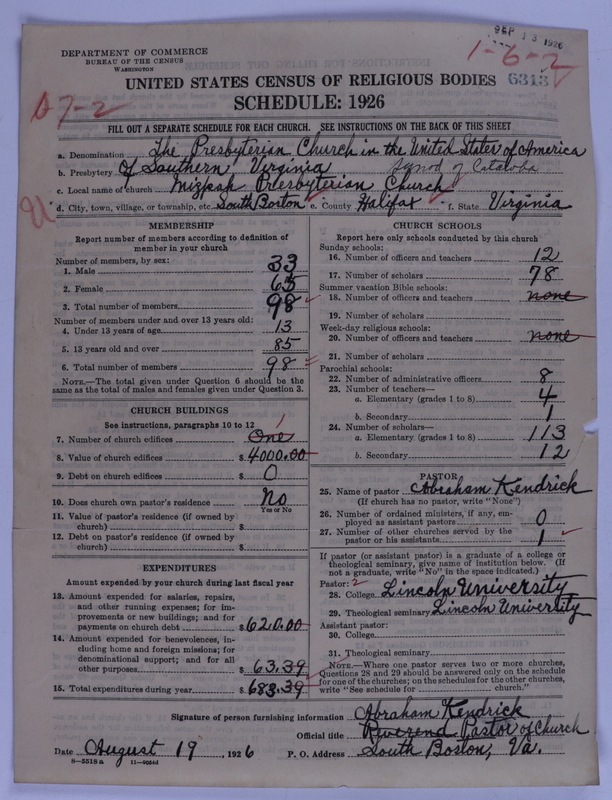 SEP 13 1926
DEPARTMENT OF COMMERCE
BUREAU OF THE CENSUS
WASHINGTON
1-6-2
UNITED STATES CENSUS OF RELIGIOUS BODIES 6313
SCHEDULE: 1926
7-2
FILL OUT A SEPARATE SCHEDULE FOR EACH CHURCH. SEE INSTRUCTIONS ON THE BACK OF THIS SHEET
a. Denomination The Presbyterian Church in the United States of America
b. Presbytery Of Southern Virginia Synod of Cataloba
c. Local name of church Mizpah Presbyterian Church
d. City, town, village, or township, etc. South Boston e. County Halifax f. State Virginia
MEMBERSHIP
Report number of members according to definition of member in your church
Number of members, by sex:
1. Male 33
2. Female 65
3. Total number of members 98
Number of members under and over 13 years old:
4. Under 13 years of age 13
5. 13 years old and over 85
6. Total number of members 98
NOTE.—The total given under Question 6 should be the same as the total of males and females given under Question 3.
CHURCH BUILDINGS
See instructions, paragraphs 10 to 12
7. Number of church edifices One 1
8. Value of church edifices $ 4000.00
9. Debt on church edifices $ 0
10. Does church own pastor's residence No
Yes or No
11. Value of pastor's residence (if owned by church) $
12. Debt on pastor's residence (if owned by church) $
EXPENDITURES
Amount expended by your church during last fiscal year
13. Amount expended for salaries, repairs, and other running expenses; for improvements or new buildings; and for payments on church debt $ 620.00
14. Amount expended for benevolences, including home and foreign missions; for denominational support; and for all other purposes $ 63.39
15. Total expenditures during year $ 683.39
CHURCH SCHOOLS
Report here only schools conducted by this church
Sunday schools:
16. Number of officers and teachers 12
17. Number of scholars 78
Summer vacation Bible schools:
18. Number of officers and teachers none
19. Number of scholars
Week-day religious schools:
20. Number of officers and teachers none
21. Number of scholars
Parochial schools:
22. Number of administrative officers 8
23. Number of teachers—
a. Elementary (grades 1 to 8) 4
b. Secondary 1
24. Number of scholars—
a. Elementary (grades 1 to 8) 113
b. Secondary 12
PASTOR
25. Name of pastor Abraham Kendrick
(If church has no pastor, write "None")
26. Number of ordained ministers, if any, employed as assistant pastors 0
27. Number of other churches served by the pastor or his assistants 1
If pastor (or assistant pastor) is a graduate of a college or theological seminary, give name of institution below. (If not a graduate, write "No" in the space indicated.)
Pastor: 2
28. College Lincoln University
29. Theological seminary Lincoln University
Assistant pastor:
30. College
31. Theological seminary
NOTE.—Where one pastor serves two or more churches, Questions 28 and 29 should be answered only on the schedule for one of the churches; on the schedules for the other churches, write "See schedule for church."
Signature of person furnishing information Abraham Kendrick
Official title Reverend Pastor of Church
Date August 19, 1926 P. O. Address South Boston, Va.
8—5518 a